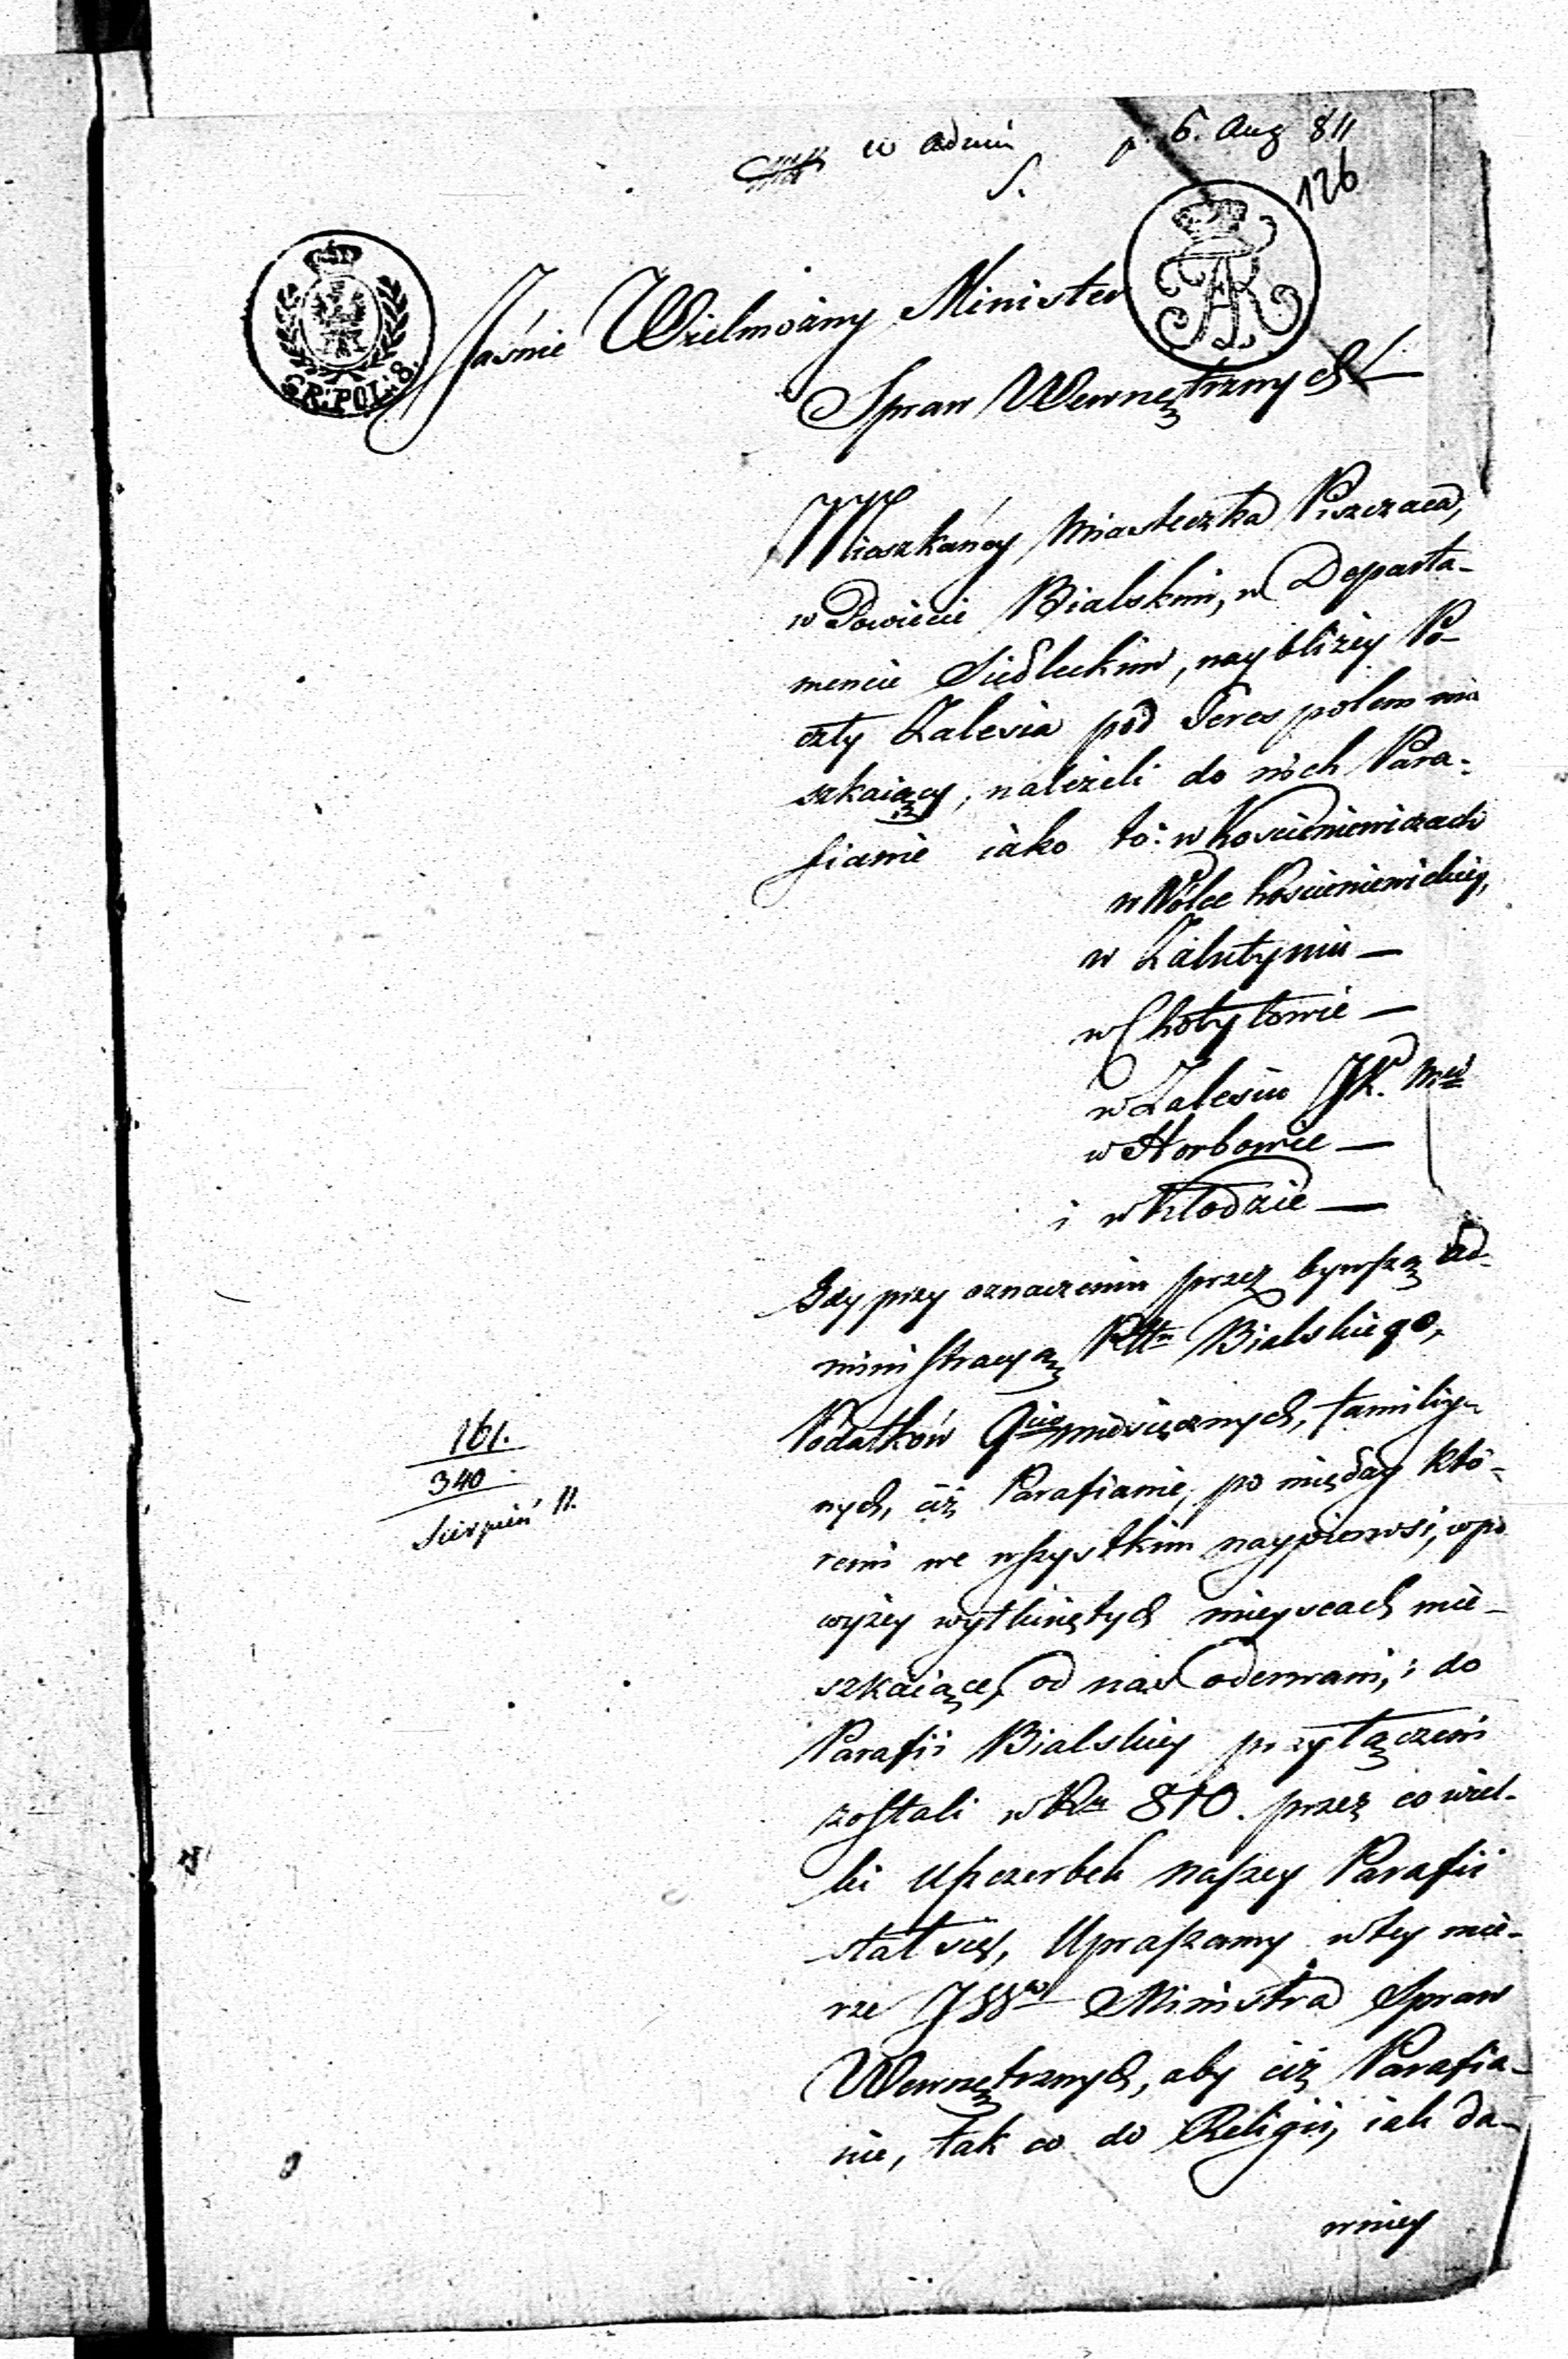 w admin p. 6. Aug 811
S. 126
GR. POL: 8.
Jaśnie Wielmożny Minister
Spraw Wewnętrznych
Mieszkańcy Miasteczka Piszczaca,
w Powiecie Bialskim, w Departa-
mencie Siedleckim, naybliżey Po-
czty Zalesia pod Terespolem mie
szkaiący, należeli do nich Para-
fianie iako to: w Kościeniewiczach
w Wólce Kościeniewickiey,
w Zalutyniu —
w Chotyłowie —
w Zalesiu JK. Mci
w Horbowie —
i w Kłodzie —
Gdy przy oznaczeniu przez bywszą Ad-
ministracyą Pttu Bialskiego,
Podatków miesięcznych, familiy-
nych, ciż Parafianie, po między któ-
remi we wszystkim naypierwsi, w po
wyżey wytkniętych mieyscach mie-
szkaiące, od nas oderwani, i do
Parafii Bialskiey przyłączeni
zostali w Ru 810. przez co wiel-
ki uszczerbek naszey Parafii
stał się, Upraszamy w tey mie-
rze JWo Ministra Spraw
Wewnętrznych, aby ciż Parafia-
nie, tak co do Religii, iak da-
wniey
161.
340
Sierpień 11.